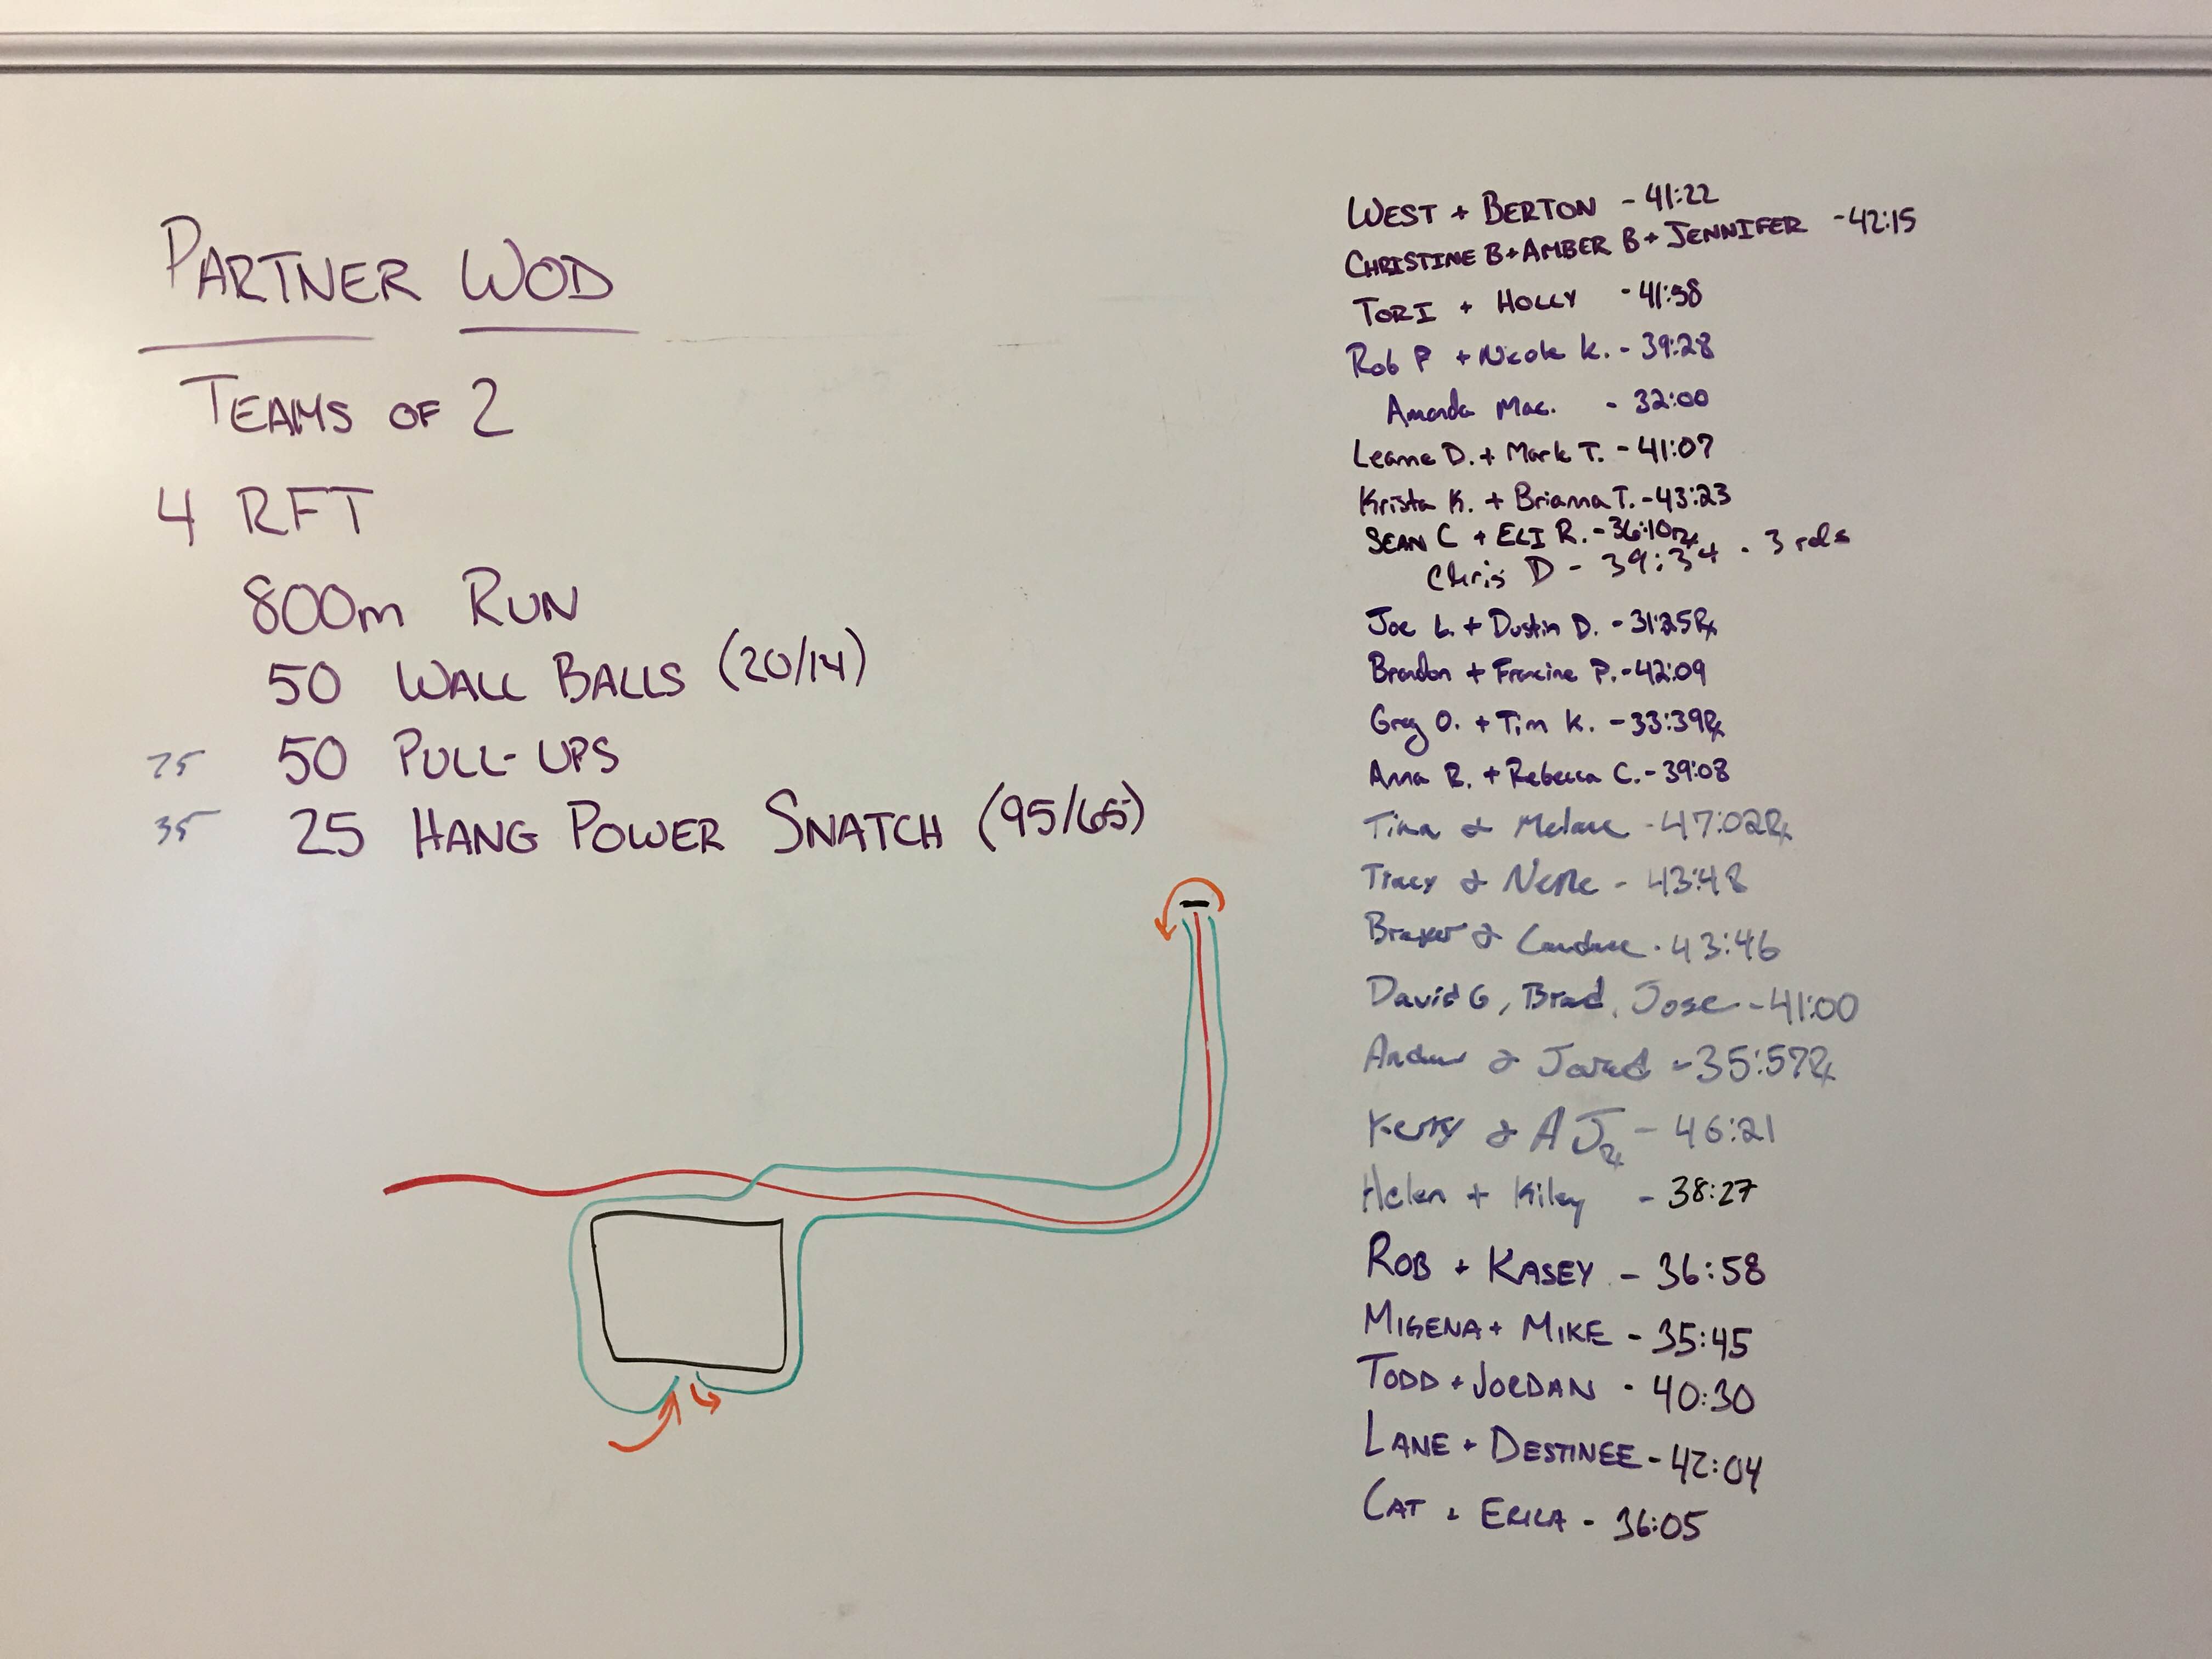 PARTNER WOD
TEAMS OF 2
4 RFT
800m RUN
50 WALL BALLS (20/14)
75 50 PULL-UPS
35 25 HANG POWER SNATCH (95/65)
WEST + BERTON - 41:22
CHRISTINE B + AMBER B + JENNIFER - 42:15
TORI + HOLLY - 41:58
Rob P + Nicole K. - 39:28
Amanda Mac. - 32:00
Leanne D. + Mark T. - 41:07
Krista K. + Brianna T. - 43:23
SEAN C + ELI R. - 36:10 Rx
Chris D - 39:34 - 3 rds
Joe L. + Dustin D. - 31:25 Rx
Brandon + Francine P. - 42:09
Greg O. + Tim K. - 33:39 Rx
Anna R. + Rebecca C. - 39:08
Tina & - 47:02 Rx
Tracy & - 43:48
& Candace - 43:46
David G, Brad, Jose - 41:00
& Jared - 35:57 Rx
Kerry & AJ Rx - 46:21
Helen + Kiley - 38:27
ROB + KASEY - 36:58
MIGENA + MIKE - 35:45
TODD + JORDAN - 40:30
LANE + DESTINEE - 42:04
CAT + ERICA - 36:05